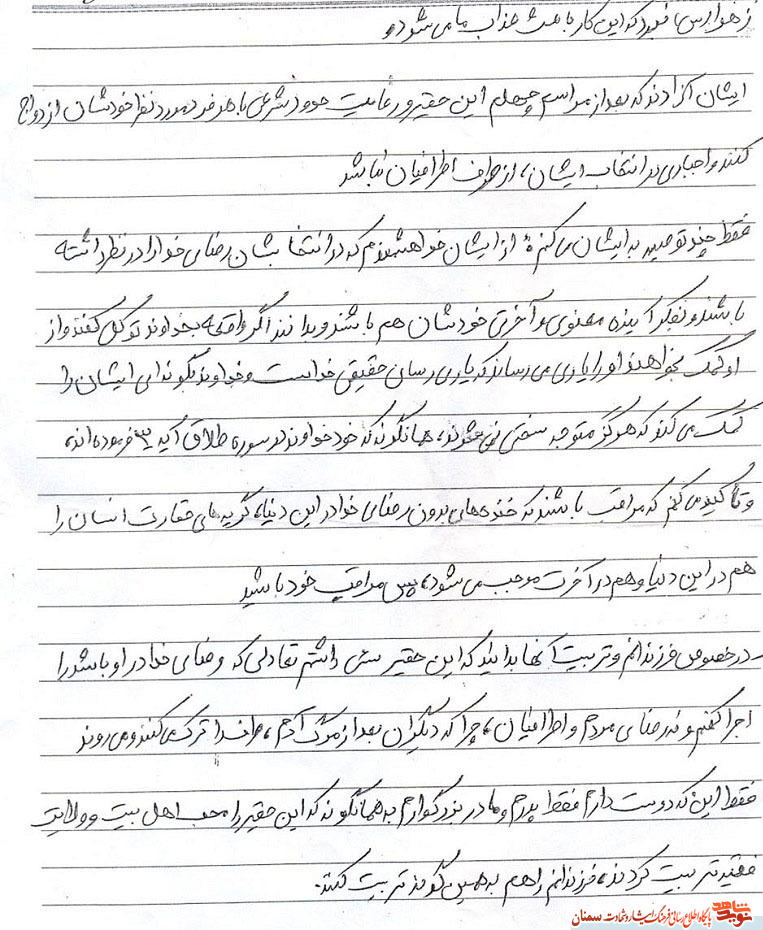 زهوارس نبرد که این کار باعث عذاب ما می‌شود،
ایشان آزادند که بعد از مراسم چهلم این حقیر و رعایت حدود شرعی با هر فرد مورد نظر خودشان ازدواج
کنند و اجباری در انتخاب ایشان، از طرف اطرافیان نباشد
فقط چند توصیه به ایشان می‌کنم از ایشان خواهشمندم که در انتخابشان رضای خدا را در نظر داشته
باشند و بفکر آینده معنوی و آخرتی خودشان هم باشند و بدانند اگر واقعاً به خداوند توکل کنند و از
او کمک بخواهند او را یاری می‌رساند که یاری رسان حقیقی خداست و خداوند بگونه‌ای ایشان را
کمک می‌کند که هرگز متوجه سختی نمی‌شوند، همانگونه که خود خداوند در سوره طلاق آیه ۳ فرموده‌اند،
و تأکید می‌کنم که مراقب باشند که خنده‌های بدون رضای خدا در این دنیا، گریه‌های حقارت انسان را
هم در این دنیا و هم در آخرت موجب می‌شود، پس مراقب خود باشید
- در خصوص فرزندانم و تربیت آنها بدانید که این حقیر سعی داشتم تعادلی که رضای خدا در او باشد را
اجرا کنم و نه رضای مردم و اطرافیان، چرا که دیگران بعد از مرگ آدم، ما را ترک می‌کنند و می‌روند
فقط این که دوست دارم فقط پدرم و مادر بزرگوارم به همانگونه که این حقیر را محب اهل بیت و ولایت
فقیه تربیت کردند، فرزندانم را هم به همین گونه تربیت کنند.
نوید شاهد پایگاه اطلاع رسانی فرهنگ ایثار و شهادت سمنان